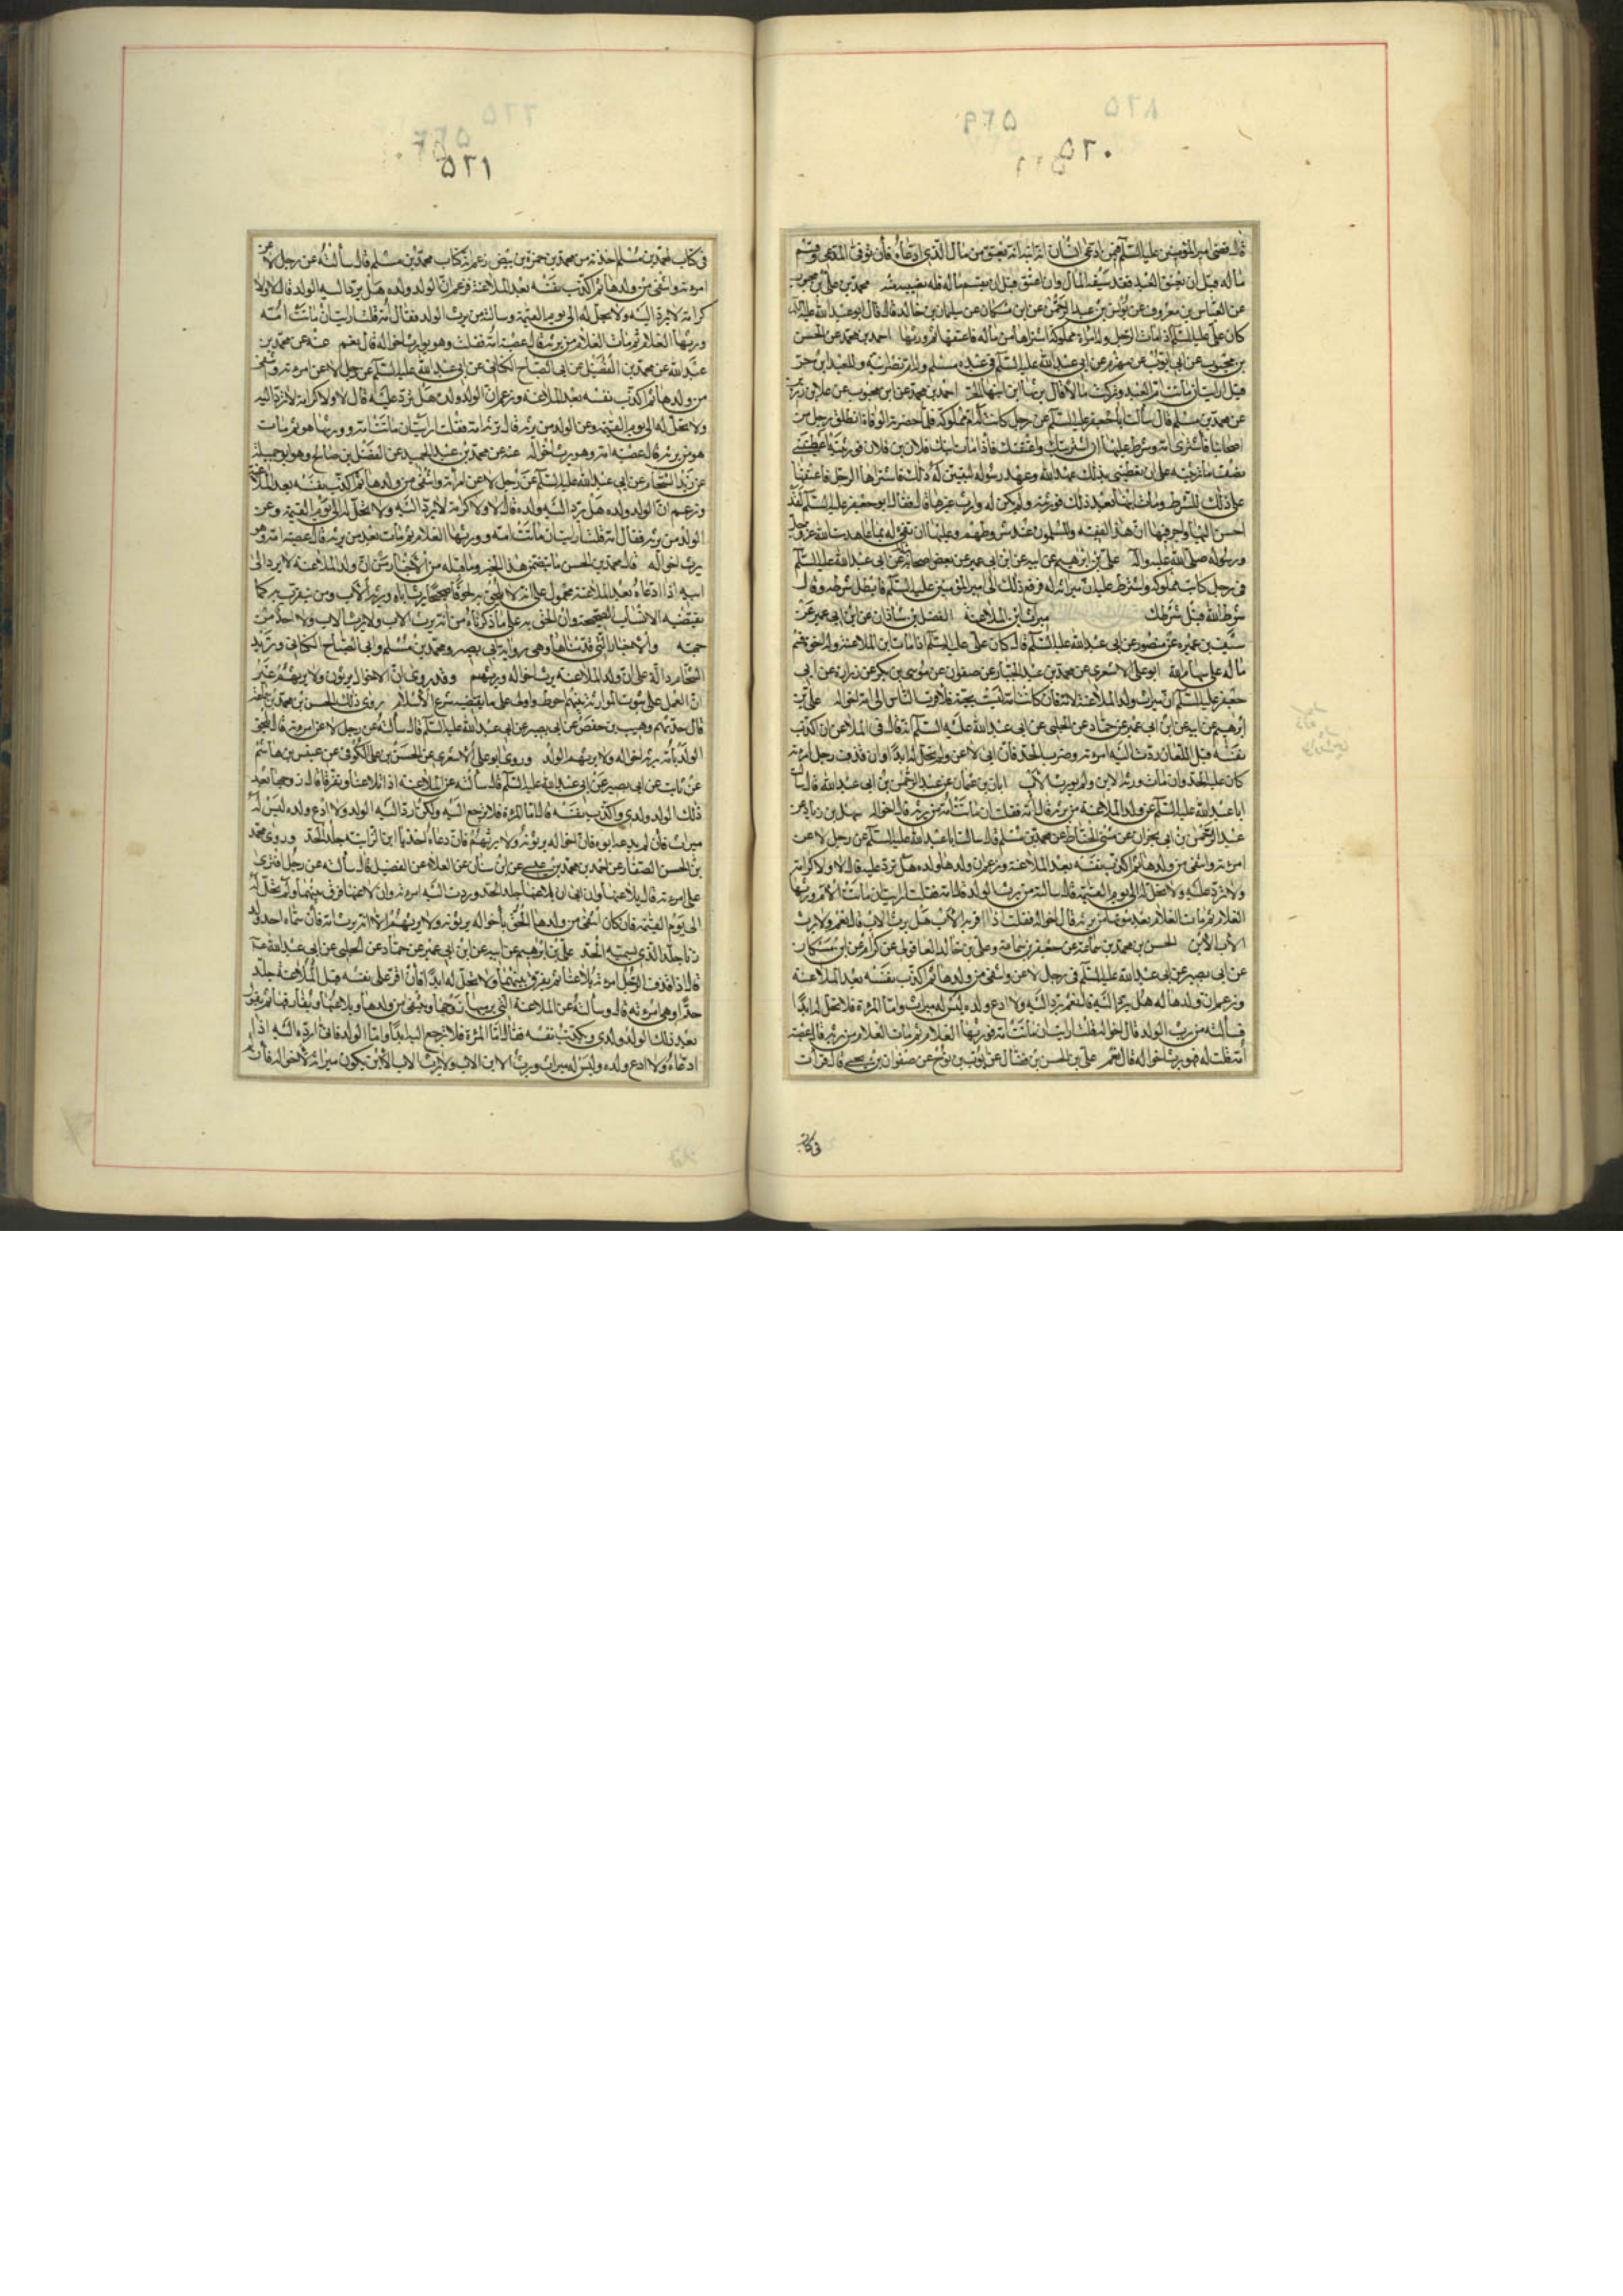 ٥٦٠
قال قضى امير المؤمنين عليه السلم فيمن ادعى
ماله قبل ان يعتق العبد فقد سبقه المال وان اعتق قبل ان يقسم ماله فله نصيبه منه محمد بن علي بن محبوب
عن العباس بن معروف عن يونس بن عبد الرحمن عن ابن مسكان عن سليمان بن خالد قال قال ابو عبد الله عليه السلم
كان علي عليه السلم اذا مات الرجل وله امراة مملوكة اشتراها من ماله فاعتقها ثم ورثها احمد بن محمد عن الحسن
بن محبوب عن ابي ايوب عن مهزم عن ابي عبد الله عليه السلم في عبد مسلم وله ام نصرانية وللعبد ابن حر
قيل ارايت ان ماتت ام العبد وتركت مالا قال يرثها ابن ابنها الحر احمد بن محمد عن ابن محبوب عن علا بن رزين
عن محمد بن مسلم قال سالت ابا جعفر عليه السلم عن رجل كانت له ام مملوكة فلما حضرته الوفاة انطلق رجل من
اصحابنا فاشترى امه وشرط عليها اني اشتريك واعتقك فاذا مات ابنك فلان بن فلان فورثته اعطيتني
نصف ما ترثينه على ان تعطيني بذلك عهد الله وعهد رسوله فاشتراها الرجل فاعتقها
على ذلك الشرط ومات ابنها بعد ذلك فورثته ولم يكن له وارث غيرها قال فقال ابو جعفر عليه السلم لقد
احسن اليها واجر فيها ان هذا لفقيه والمسلمون عند شروطهم وعليها ان تفي له بما عاهدت الله عز وجل
ورسوله صلى الله عليه واله علي بن ابرهيم عن ابيه عن ابن ابي عمير عن بعض اصحابه عن ابي عبد الله عليه السلم
في رجل كاتب مملوكه واشترط عليه ان ميراثه له فرفع ذلك الى امير المؤمنين عليه السلم فابطل شرطه وقال
شرط الله قبل شرطك ميراث ابن الملاعنة الفضل بن شاذان عن ابن ابي عمير عن
سيف بن عميره عن منصور عن ابي عبد الله عليه السلم قال كان علي عليه السلم اذا مات ابن الملاعنة وله اخوة قسم
ماله على سهام الله ابو علي الاشعري عن محمد بن عبد الجبار عن صفوان عن موسى بن بكر عن زرارة عن ابي
جعفر عليه السلم ان ميراث ولد الملاعنة لامه فان كانت امه ليست بحية فلاقرب الناس الى امه اخواله علي بن
ابرهيم عن ابيه عن ابن ابي عمير عن حماد عن الحلبي عن ابي عبد الله عليه السلم انه قال في الملاعن ان اكذب
نفسه قبل اللعان ردت اليه امرءته وضرب الحد فان ابى لاعن ولم تحل له ابدا وان قذف رجل امرءته
كان عليه الحد وان مات ولده ورثه اخواله
ابا عبد الله عليه السلم عن ولد الملاعنة من يرثه قال امه فقلت ان ماتت امه من يرثه قال اخواله سهل بن زياد عن
عبد الرحمن بن ابي نجران عن مثنى الحناط عن محمد بن مسلم قال سالت ابا عبد الله عليه السلم عن رجل لاعن
امرءته وانتفى من ولدها ثم اكذب نفسه بعد الملاعنة وزعم ان ولدها ولده هل ترد عليه قال لا ولا كرامة
ولا ترد عليه ولا تحل له الى يوم القيمة قال سالته من يرث الولد قال امه فقلت ارايت ان ماتت الام وورثها
الغلام ثم مات الغلام بعد موتها من يرثه قال اخواله فقلت اذا اقر به الاب هل يرث الاب قال نعم ولا يرث
الاب الابن الحسن بن محمد بن سماعة عن جعفر بن سماعة وعلي بن خالد العاقولي عن كرام عن ابن مسكان
عن ابي بصير عن ابي عبد الله عليه السلم في رجل لاعن وانتفى من ولدها ثم اكذب نفسه بعد الملاعنة
وزعم ان ولدها له هل يرد اليه قال نعم يرد اليه ولا ادع ولده ليس له ميراث واما المرءة فلا تحل له ابدا
فسالته من يرث الولد قال اخواله قلت ارايت ان ماتت امه فورثها الغلام ثم مات الغلام من يرثه قال عصبة
امه قلت له فهو يرث اخواله قال نعم علي بن الحسن بن فضال عن ايوب بن نوح عن صفوان بن يحيى قال قرات
في كتاب
٥٦١
في كتاب لمحمد بن مسلم اخذته من محمد بن حمزة بن بيض زعم انه كتاب محمد بن مسلم قال سالته عن رجل لاعن
امرءته وانتفى من ولدها ثم اكذب نفسه بعد الملاعنة وزعم ان الولد ولده هل يرد اليه الولد قال لا ولا
كرامة لا يرد اليه ولا تحل له الى يوم القيمة وسالته من يرث الولد فقال امه قلت ارايت ان ماتت امه
وورثها الغلام ثم مات الغلام من يرثه قال عصبة امه فقلت وهو يرث اخواله قال نعم عنه عن محمد بن
عبد الله عن محمد بن الفضيل عن ابي الصباح الكناني عن ابي عبد الله عليه السلم عن رجل لاعن امرءته وانتفى
من ولدها ثم اكذب نفسه بعد الملاعنة وزعم ان الولد ولده هل ترد عليه قال لا ولا كرامة لا ترد اليه
ولا تحل له الى يوم القيمة وعن الولد من يرثه قال ترثه امه فقلت ارايت ان ماتت امه وورثها هو ثم مات
هو من يرثه قال عصبة امه وهو يرث اخواله عنه عن محمد بن عبد الحميد عن المفضل بن صالح وهو ابو جميلة
عن زيد الشحام عن ابي عبد الله عليه السلم عن رجل لاعن امراته وانتفى من ولدها ثم اكذب نفسه بعد الملاعنة
وزعم ان الولد ولده هل يرد اليه ولده قال لا ولا كرامة لا يرد اليه ولا تحل له الى يوم القيمة وعن
الولد من يرثه فقال امه قلت ارايت ان ماتت امه وورثها الغلام ثم مات بعد من يرثه قال عصبة امه وهو
يرث اخواله قال محمد بن الحسن ما تضمن هذا الخبر وما قبله من الاخبار من ان ولد الملاعنة لا يرد الى
ابيه اذا ادعاه بعد الملاعنة محمول على انه لا يلحق به لحوقا صحيحا يرث اباه ويرثه الاب ومن يتقرب به كما
تقتضيه الانساب الصحيحة وان الحق به على ما ذكرناه من انه يرث الاب ولا يرثه الاب ولا احد من
جهته والاخبار التي قدمناها وهي رواية ابي بصير ومحمد بن مسلم وابي الصباح الكناني وزيد
الشحام دالة على ان ولد الملاعنة يرث اخواله ويرثهم وقد روي ان الاخوال يرثونه ولا يرثهم غير
ان العمل على ثبوت الموارثة بينهم احوط واوفق على ما يقتضيه شرع الاسلام روى ذلك الحسن بن محمد بن سماعة
قال حدثهم وهيب بن حفص عن ابي بصير عن ابي عبد الله عليه السلم قال سالته عن رجل لاعن امرءته قال يلحق
الولد بامه يرثه اخواله ولا يرثهم الولد وروى ابو علي الاشعري عن الحسن بن علي الكوفي عن عبيس بن هاشم
عن ثابت عن ابي بصير عن ابي عبد الله عليه السلم قال سالته عن الملاعنة اذا تلاعنا وتفرقا وقال زوجها بعد
ذلك الولد ولدي واكذب نفسه قال اما المرءة فلا ترجع اليه ولكن ارد اليه الولد ولا ادع ولده ليس له
ميراث فان لم يدعه ابوه فان اخواله يرثونه ولا يرثهم فان دعاه احد يا ابن الزانية جلد الحد وروى محمد
بن الحسن الصفار عن احمد بن محمد بن عيسى عن ابن سنان عن العلا عن الفضيل قال سالته عن رجل افترى
على امرءته قال يلاعنها وان ابى ان يلاعنها جلد الحد وردت اليه امرءته وان لاعنها فرق بينهما ولم تحل له
الى يوم القيمة فان كان انتفى من ولدها الحق باخواله يرثونه ولا يرثهم الا انه يرث امه فان سماه احد ولد
زنا جلد الذي يسميه الحد علي بن ابرهيم عن ابيه عن ابن ابي عمير عن حماد عن الحلبي عن ابي عبد الله عليه السلم
قال اذا قذف الرجل امرءته يلاعنها ثم يفرق بينهما ولا تحل له ابدا فان اقر على نفسه قبل الملاعنة جلد
حدا وهي امرءته قال وسالته عن الملاعنة التي يرميها زوجها وينتفي من ولدها ويلاعنها ويفارقها ثم يقول
بعد ذلك الولد ولدي ويكذب نفسه فقال اما المرءة فلا ترجع اليه ابدا واما الولد فاني ارده اليه اذا
ادعاه ولا ادع ولده وليس له ميراث ويرث الابن الاب ولا يرث الاب الابن يكون ميراثه لاخواله فان لم